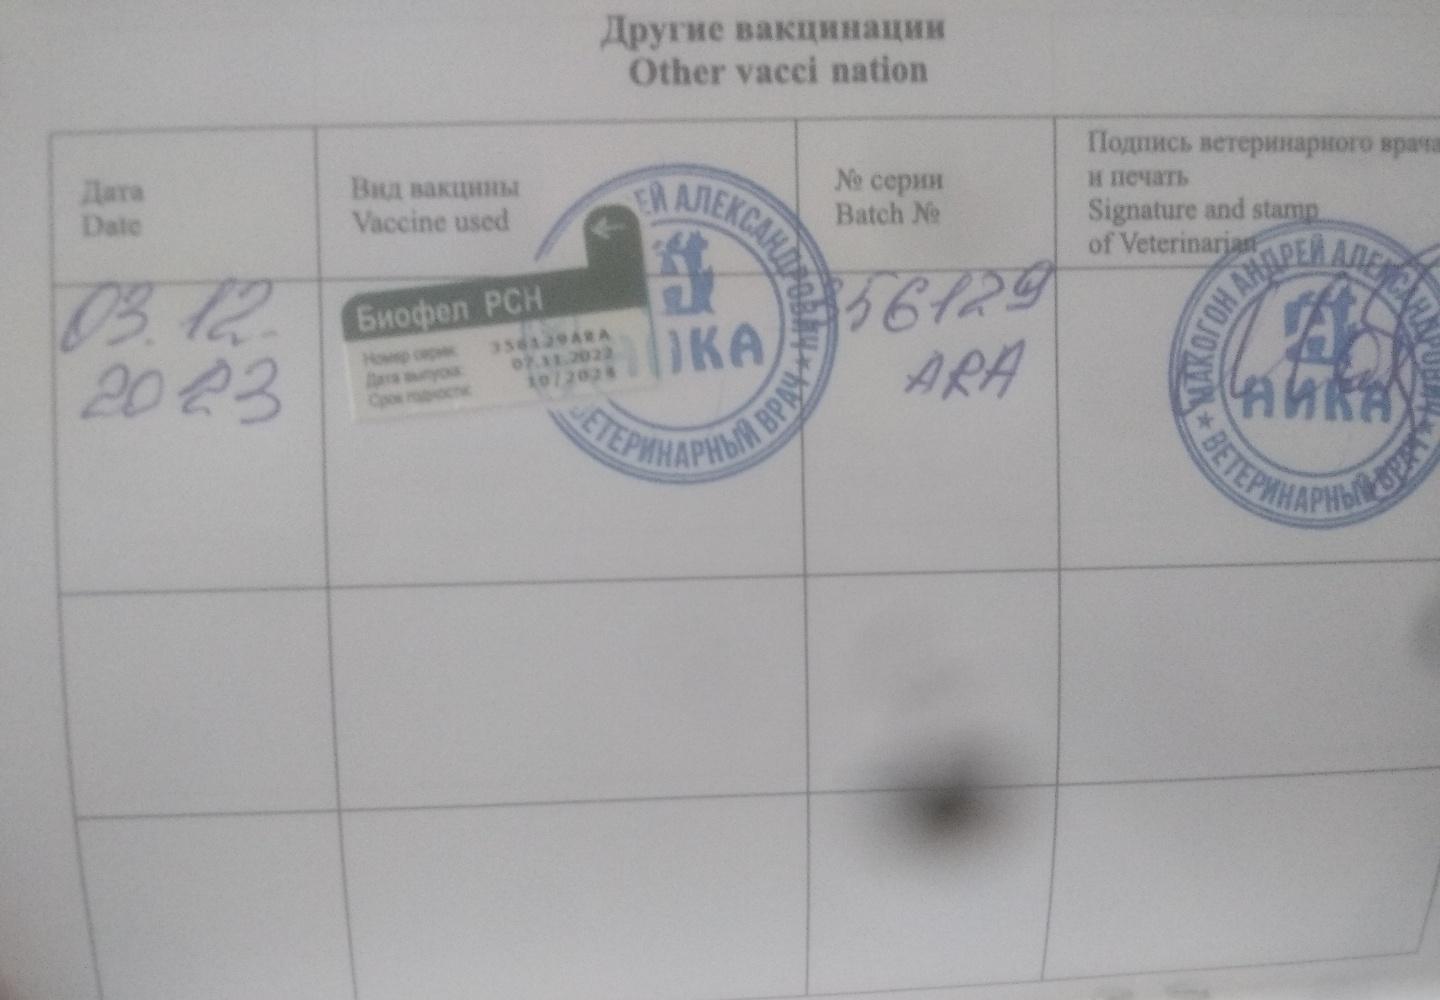 Другие вакцинации
Other vacci nation
Дата
Date
Вид вакцины
Vaccine used
№ серии
Batch №
Подпись ветеринарного врача
и печать
Signature and stamp
of Veterinarian
03.12.
2023
Биофел PCH
Номер серии: 356129ARA
Дата выпуска: 07.11.2022
Срок годности: 10/2024
ЕЙ АЛЕКСАНДРОВИЧ
ИКА
ВЕТЕРИНАРНЫЙ ВРАЧ
356129
ARA
МАКОГОН АНДРЕЙ АЛЕКСАНДРОВИЧ
АЙКА
ВЕТЕРИНАРНЫЙ ВРАЧ